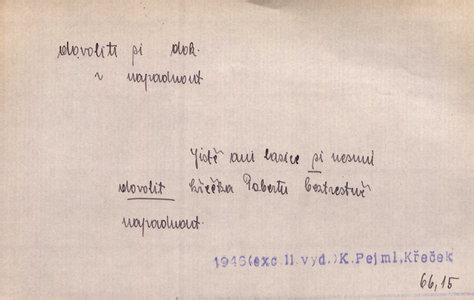 dovoliti si dok.
v napadnout
Jistě ani lasice si nesmí
dovolit křečka Roberta beztrestně
napadnout.
1946(exc.II.vyd.)K.Pejml,Křeček
66,15